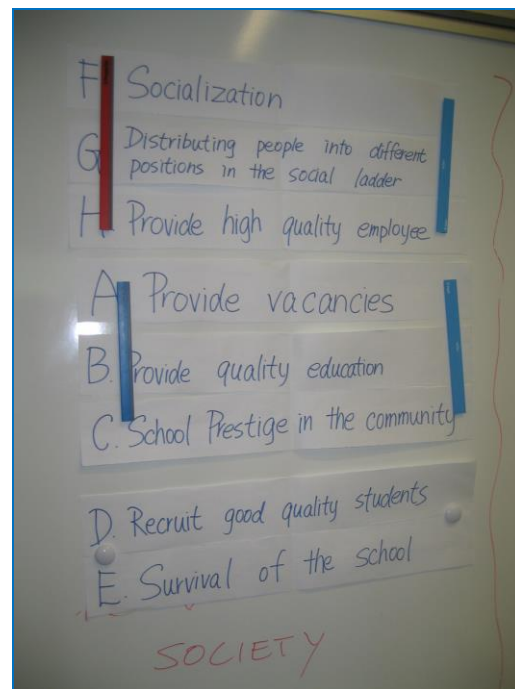 F Socialization
G Distributing people into different
positions in the social ladder
H. Provide high quality employee
A Provide vacancies
B. Provide quality education
C. School Prestige in the community
D. Recruit good quality students
E. Survival of the school
SOCIETY